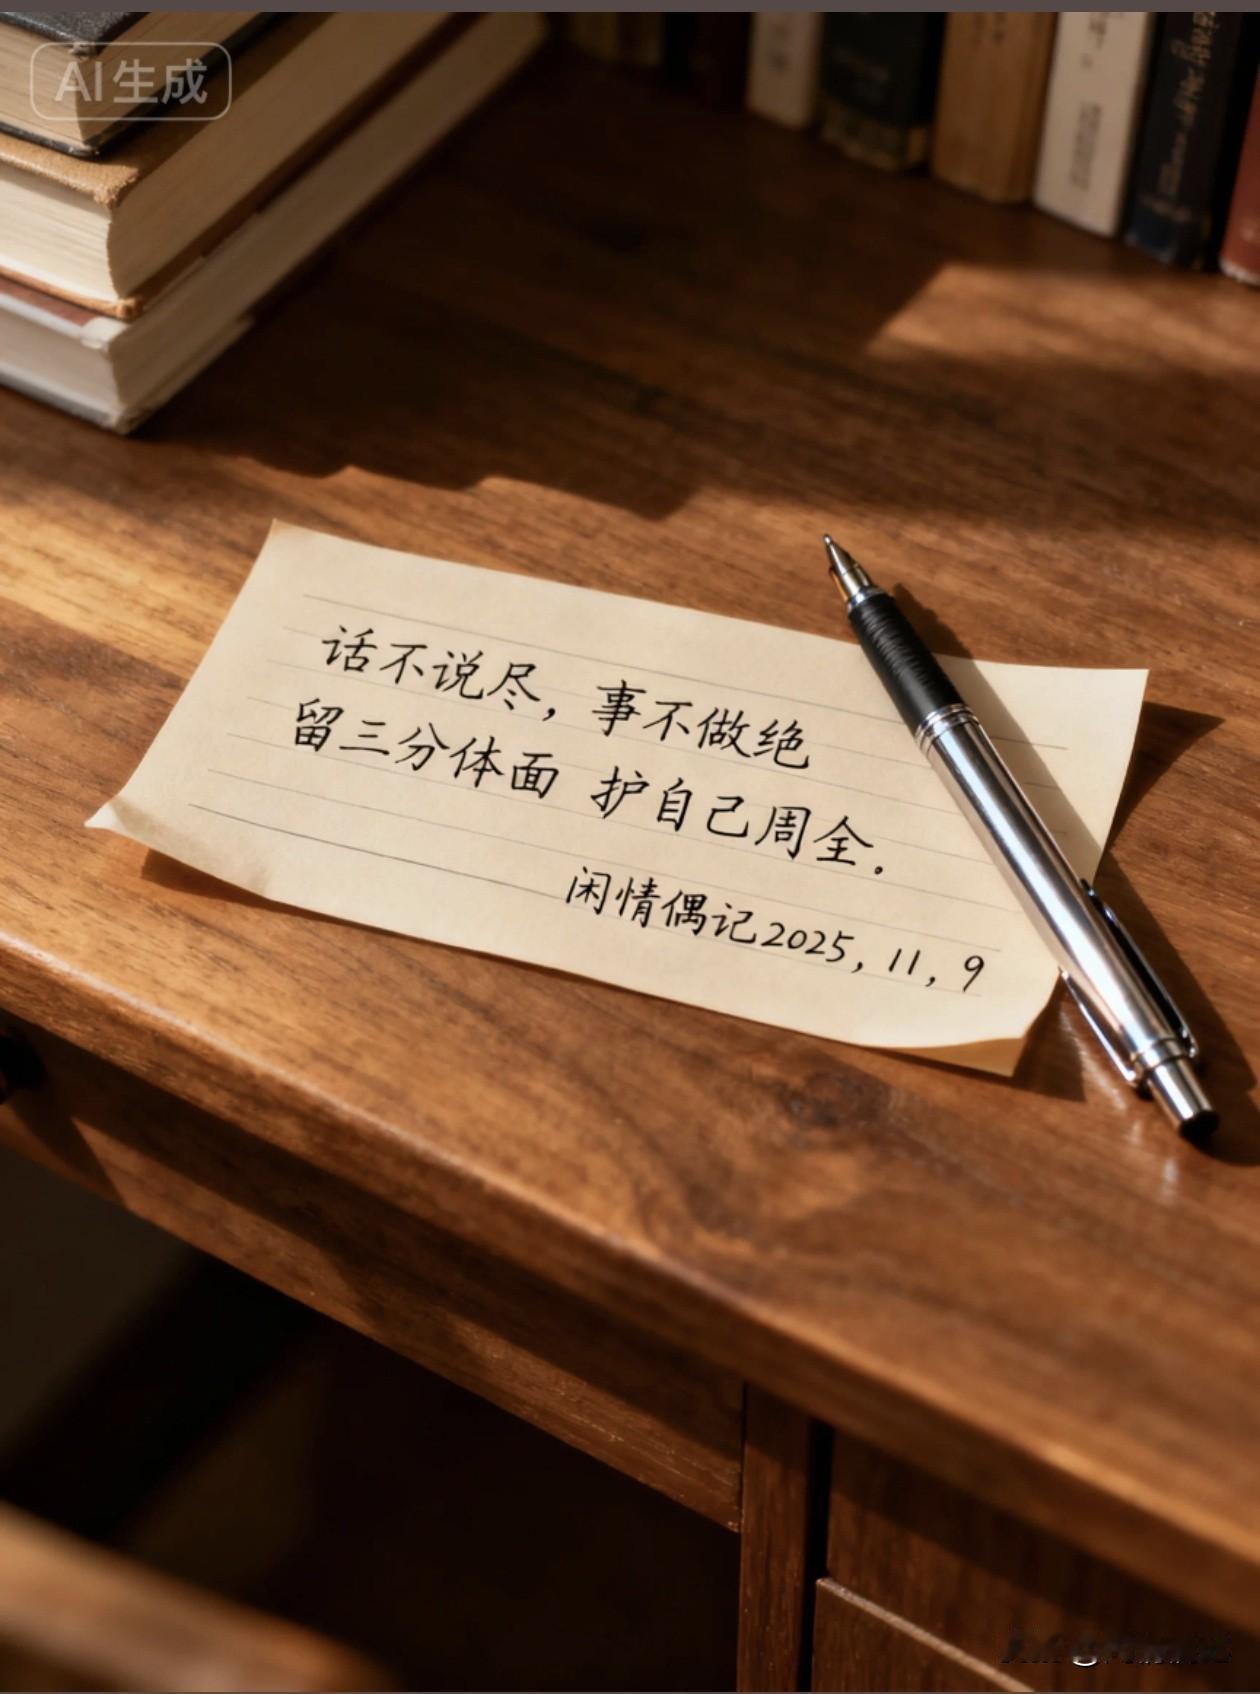 AI生成
话不说尽，事不做绝
留三分体面 护自己周全。
闲情偶记2025，11，9